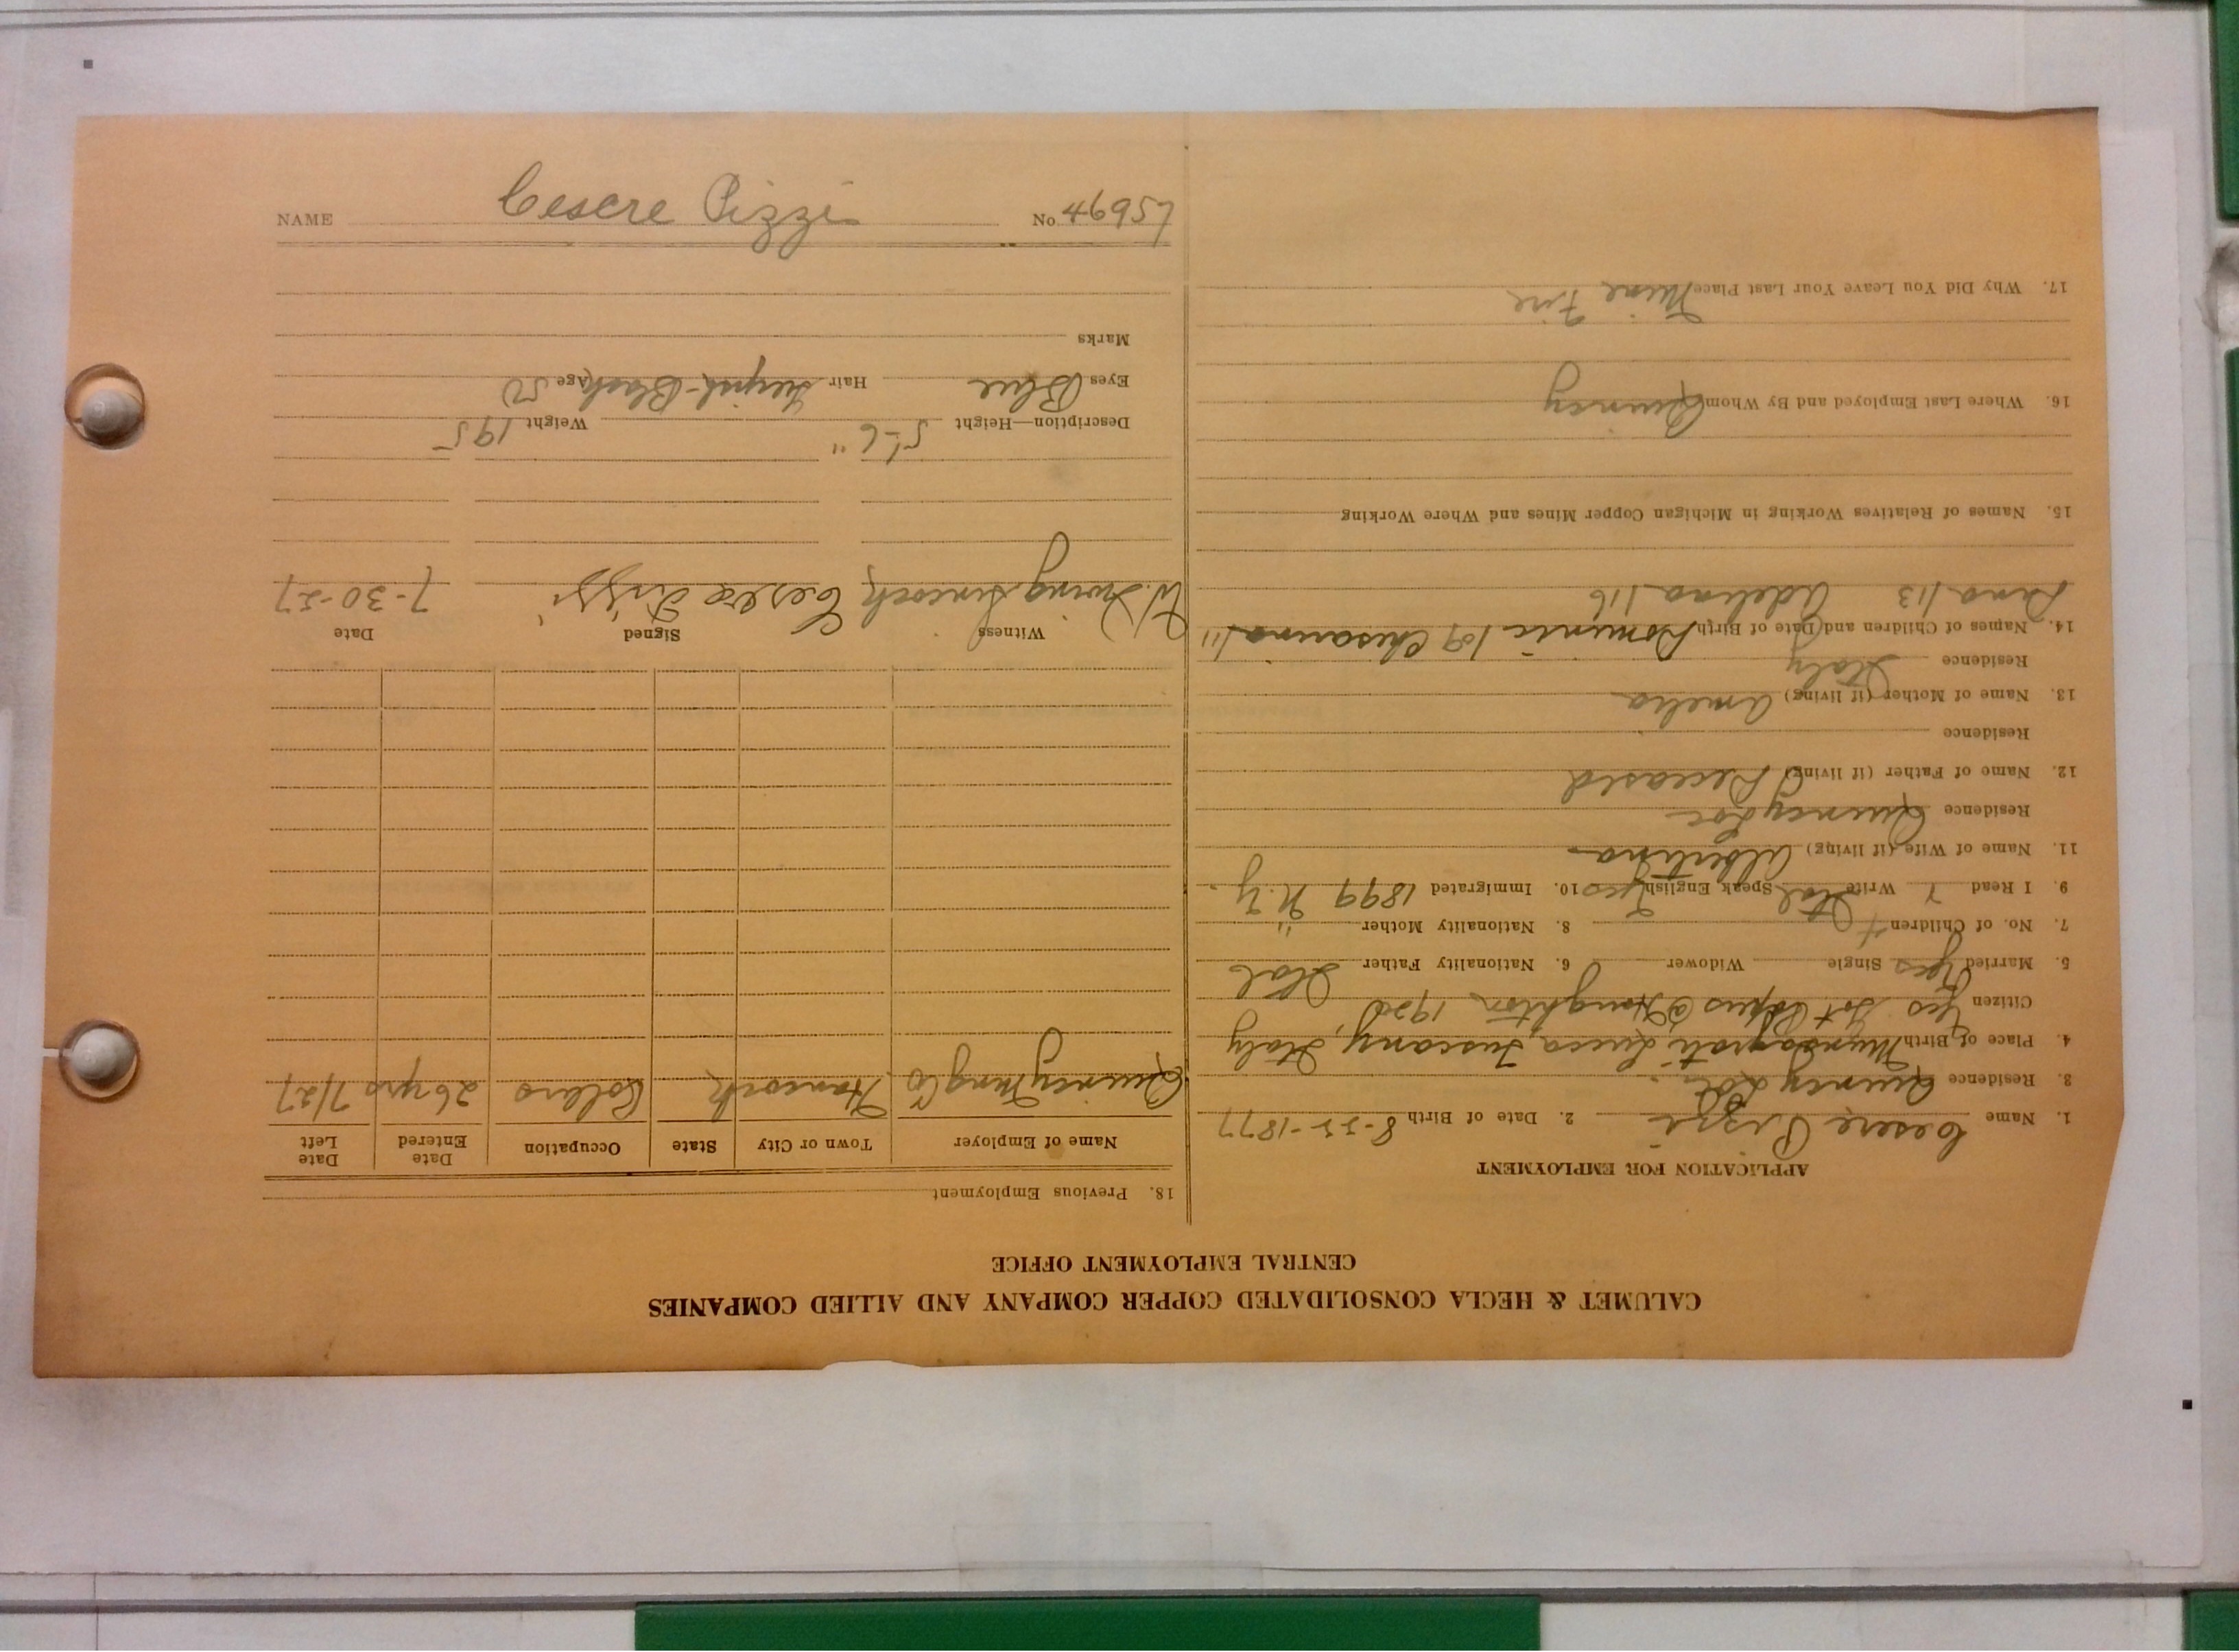 NAME Cesere Pizzi No 46957
CALUMET & HECLA CONSOLIDATED COPPER COMPANY AND ALLIED COMPANIES
CENTRAL EMPLOYMENT OFFICE
APPLICATION FOR EMPLOYMENT
1. Name Cesere Pizzi 2. Date of Birth 8-22-1877
3. Residence Quincy Loc.
4. Place of Birth Lucca, Tuscany, Italy
Citizen Yes Got Papers @ Houghton 1920
5. Married Yes Single Widower 6. Nationality Father Ital
7. No. of Children 4 8. Nationality Mother "
9. I Read Y Write Ital Speak English Yes 10. Immigrated 1899 N.Y.
11. Name of Wife (if living) Albertina
Residence Quincy Loc
12. Name of Father (if living) Deceased
Residence
13. Name of Mother (if living) Amelia
Residence Italy
14. Names of Children and Date of Birth Dominic /09 /11
/13 Adelina /16
15. Names of Relatives Working in Michigan Copper Mines and Where Working
16. Where Last Employed and By Whom Quincy
17. Why Did You Leave Your Last Place Mine Fire
18. Previous Employment
Name of Employer Town or City State Occupation Date Entered Date Left
Quincy Mng Co Hancock 26 yrs 7/27
Witness Signed Date
W. Irving Cesere Pizzi 7-30-27
Description—Height 5'-6" Weight 195
Eyes Blue Hair Black Age 50
Marks